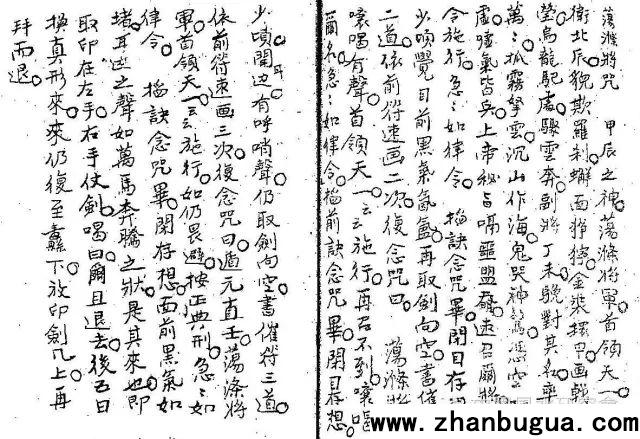 蕩滌將咒　甲辰之神蕩滌將軍首領天一
衛北辰貌欺羅刹獬面猙獰金裝擐甲画戟
瑩烏龍駝處驟雲奔副將丁未驍對其名率
萬：抓霧拏雲沉山作海鬼哭神驚憑空
虛嘘氣皆兵上帝秘旨嗝嚚盟凝速召爾將
令施行急：如律令　搯訣念咒畢閉目存
少頃覺目前黑氣氤氳再取劍向空書催
二道依前符速画二次復念咒曰　蕩滌將
嚷喝有聲首領天一云云施行再若不到嚷嘔
爾名急：如律令搯前訣念咒畢閉目存想
少頃聞边有呼哨聲仍取劍向空書催符三道
依前符速画三次復念咒曰遁元直壬蕩滌將
軍首領天一云云施行如仍畏避按正典刑急：如
律令　搯訣念咒畢閉存想面前黑氣如
堵耳边之聲如萬馬奔騰之狀是其來也即
取印在左手右手仗劍喝曰爾且退去後五日
換真形來來仍復至纛下放印劍几上再
拜而退
www.zhanbugua.com